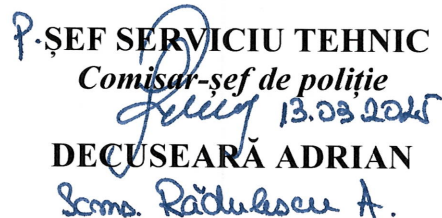 P. ȘEF SERVICIU TEHNIC
Comisar-șef de poliție
13.03.2025
DECUSEARĂ ADRIAN
Scms. Rădulescu A.